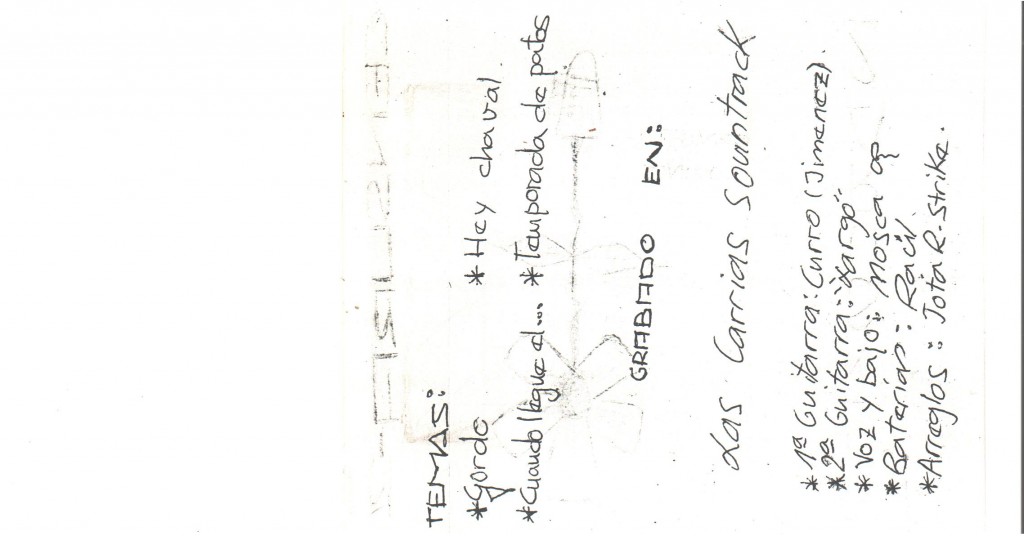 TEMAS:
*Gordo *Hey chaval.
*Cuando llegue el... *Temporada de patos
GRABADO EN:
Las Carrias Sountrack
*1ª Guitarra: Curro (Jimenez).
*2ª Guitarra: "Largo".
*Voz y bajo: Mosca
*Baterías: Raúl.
*Arreglos: Jota R. Strike.